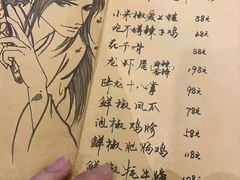 小米椒爱上蛙 88元
吃不够辣子鸡 68元
花千骨 88元
龙虾尾 麻辣 香辣 198元
卧龙十八掌 98元
鲜椒凤爪 78元
泡椒鸡胗 58元
鲜椒肥肠鸡 118元
鲜椒 牛蛙